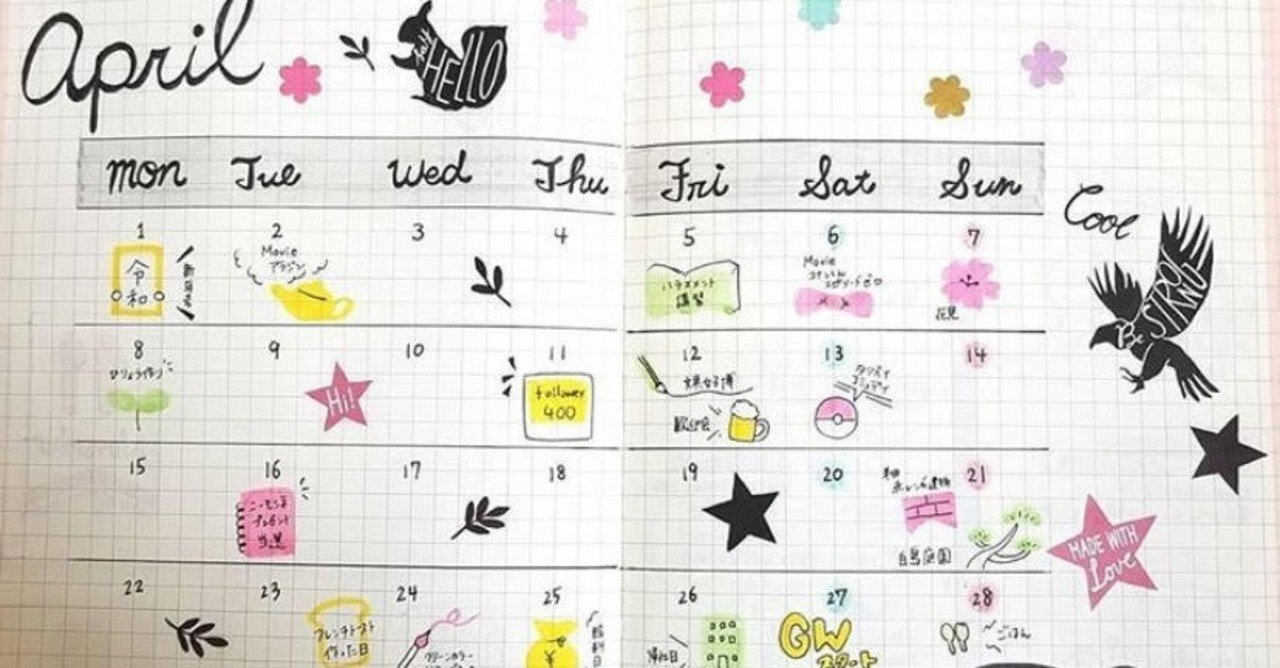 April
HELLO
mon Tue Wed Thu Fri Sat Sun
Cool
1 2 3 4 5 6 7
令和
Movie
アラジン
ハラスメント
講習
Movie
花見
Be STRONG
8 9 10 11 12 13 14
Hi!
follower
400
文具女子博
歓迎会
15 16 17 18 19 20 21
プレゼント
当選
白鳥庭園
MADE WITH
Love
22 23 24 25 26 27 28
フレンチトースト
作った日
給料日
帰社日
GW
スタート
ごはん